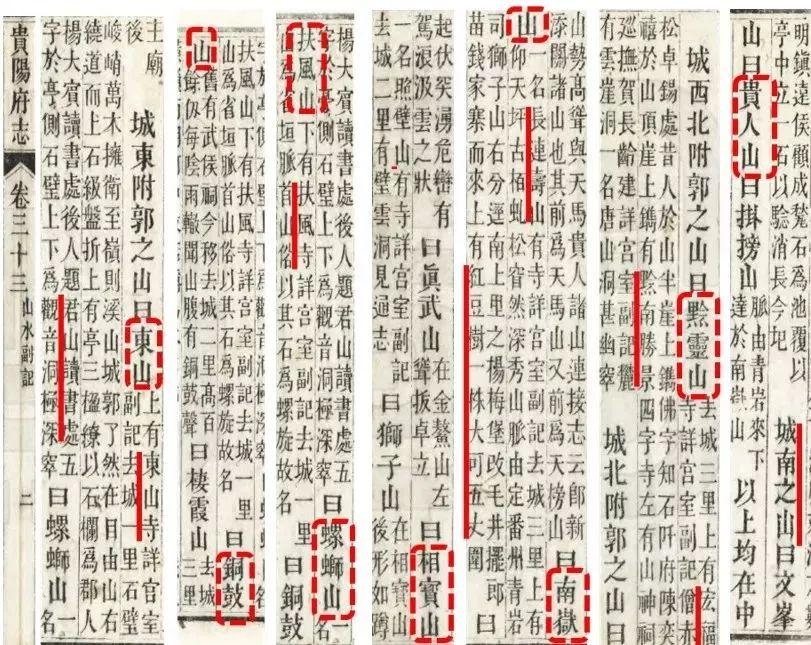 貴陽府志 卷三十三 山水副記 二
王廟
後
城東附郭之山曰東山
上有東山寺詳宮室
副記去城一里石壁
峻峭萬木擁衛至嶺則溪山城郭了然在目由山右
繞道而上石級盤折上有亭三楹繚以石欄爲郡人
楊大賓讀書處後人題君山讀書處五
字於亭側石壁上下爲觀音洞極深窣
曰螺螄山
一
扶風山下有扶風寺詳宮室副記去城一里
山爲省垣脈首山俗以其石爲螺旋故名
曰銅鼓
山
舊有武侯祠今移去城二里高百
餘仞每陰雨輒聞山腹有銅鼓聲
曰棲霞山
去城
三里
楊大賓讀書處後人題君山讀書處五
字於亭側石壁上下爲觀音洞極深窣
曰螺螄山
一名
扶風山下有扶風寺詳宮室副記去城一里
山爲省垣脈首山俗以其石爲螺旋故名
曰銅鼓
起伏突湧危巒有
駕浪汲雲之狀
曰眞武山
在金鰲山左
聳拔卓立
曰相寶山
一名照壁山有寺詳宮室副記
去城二里有壁雲洞見通志
曰獅子山
在相寶山
後形如蹲
山勢高聳與天馬貴人諸山連接志云郎新
添關諸山也其前爲天馬山又前爲天榜山
曰南嶽
山
一名長連壽山有寺詳宮室副記去城三里上有
仰天坪古栢虬松窅然深秀山脈由定番州青岩
司獅子山右分逕南上里之楊梅堡改毛井擺郎
苗錢家寨而來上有紅豆樹一株大可五丈圍
曰
城西北附郭之山曰黔靈山
去城三里上有宏福
寺詳宮室副記僧赤
松卓錫處昔人於山半崖上鐫佛字知石阡府陳奕
禧於山頂崖上鐫有黔南勝景四字寺左有山神祠
巡撫賀長齡建詳宮室副記麗
有雲崖洞一名唐山洞甚幽窣
城北附郭之山曰
明鎮遠侯顧成甃石爲池覆以
亭中立一石以驗消長今圮
城南之山曰文峯
山曰貴人山曰掛榜山
脈由青岩來下
達於南嶽山
以上均在中